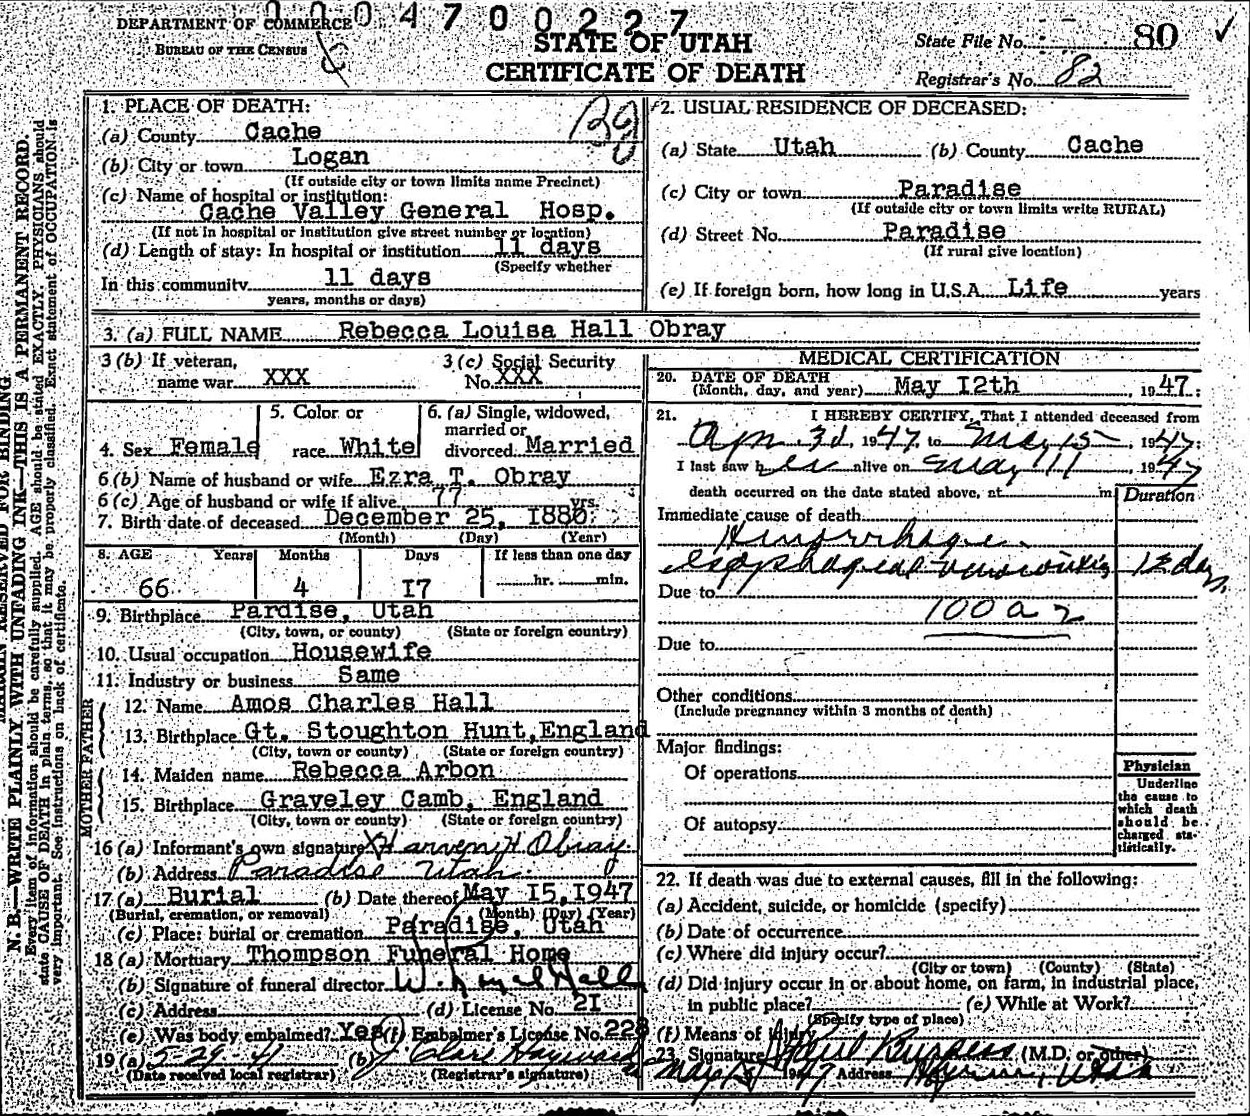 004700227
DEPARTMENT OF COMMERCE
BUREAU OF THE CENSUS
STATE OF UTAH
CERTIFICATE OF DEATH
State File No. 80
Registrar's No. 82
1. PLACE OF DEATH:
(a) County Cache
(b) City or town Logan
(If outside city or town limits name Precinct)
(c) Name of hospital or institution:
Cache Valley General Hosp.
(If not in hospital or institution give street number or location)
(d) Length of stay: In hospital or institution 11 days
(Specify whether
In this community 11 days
years, months or days)
2. USUAL RESIDENCE OF DECEASED:
(a) State Utah (b) County Cache
(c) City or town Paradise
(If outside city or town limits write RURAL)
(d) Street No. Paradise
(If rural give location)
(e) If foreign born, how long in U.S.A. Life years
3. (a) FULL NAME Rebecca Louisa Hall Obray
3 (b) If veteran, name war XXX
3 (c) Social Security No. XXX
4. Sex Female
5. Color or race White
6. (a) Single, widowed, married or divorced Married
6 (b) Name of husband or wife Ezra T. Obray
6 (c) Age of husband or wife if alive 77 yrs.
7. Birth date of deceased December 25, 1880
(Month) (Day) (Year)
8. AGE Years Months Days If less than one day
66 4 17 hr. min.
9. Birthplace Pardise, Utah
(City, town, or county) (State or foreign country)
10. Usual occupation Housewife
11. Industry or business Same
FATHER
12. Name Amos Charles Hall
13. Birthplace Gt. Stoughton Hunt, England
(City, town or county) (State or foreign country)
MOTHER
14. Maiden name Rebecca Arbon
15. Birthplace Graveley Camb, England
(City, town or county) (State or foreign country)
16 (a) Informant's own signature X Harven H Obray
(b) Address Paradise Utah.
17 (a) Burial (b) Date thereof May 15, 1947
(Burial, cremation, or removal) (Month) (Day) (Year)
(c) Place: burial or cremation Paradise, Utah
18 (a) Mortuary Thompson Funeral Home
(b) Signature of funeral director W. Loyal Hall
(c) Address (d) License No. 21
(e) Was body embalmed? Yes (f) Embalmer's License No. 228
19 (a) 5-29-47 (b) J. Clare Hayward
(Date received local registrar) (Registrar's signature)
MEDICAL CERTIFICATION
20. DATE OF DEATH
(Month, day, and year) May 12th, 1947:
21. I HEREBY CERTIFY, That I attended deceased from
Apr 30, 1947, to May 15, 1947:
I last saw her alive on May 11 1947
death occurred on the date stated above, at m
Duration
Immediate cause of death
Hemorrhage
12 days
Due to
100 a 2
Due to
Other conditions
(Include pregnancy within 3 months of death)
Major findings:
Of operations
Of autopsy
Physician
Underline the cause to which death should be charged statistically.
22. If death was due to external causes, fill in the following:
(a) Accident, suicide, or homicide (specify)
(b) Date of occurrence
(c) Where did injury occur?
(City or town) (County) (State)
(d) Did injury occur in or about home, on farm, in industrial place, in public place? (e) While at Work?
(Specify type of place)
(f) Means of Injury
23 Signature Burgess (M.D. or other)
May 15 1947 Address Hyrum, Utah
MARGIN RESERVED FOR BINDING
N. B.—WRITE PLAINLY WITH UNFADING INK—THIS IS A PERMANENT RECORD.
Every item of information should be carefully supplied. AGE should be stated EXACTLY. PHYSICIANS should
state CAUSE OF DEATH in plain terms, so that it may be properly classified. Exact statement of OCCUPATION is
very important. See instructions on back of certificate.